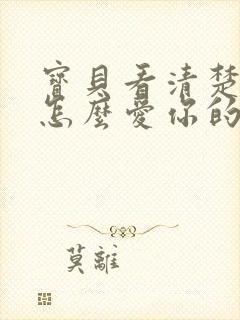 寶貝看清楚
怎麼愛你的
莫離